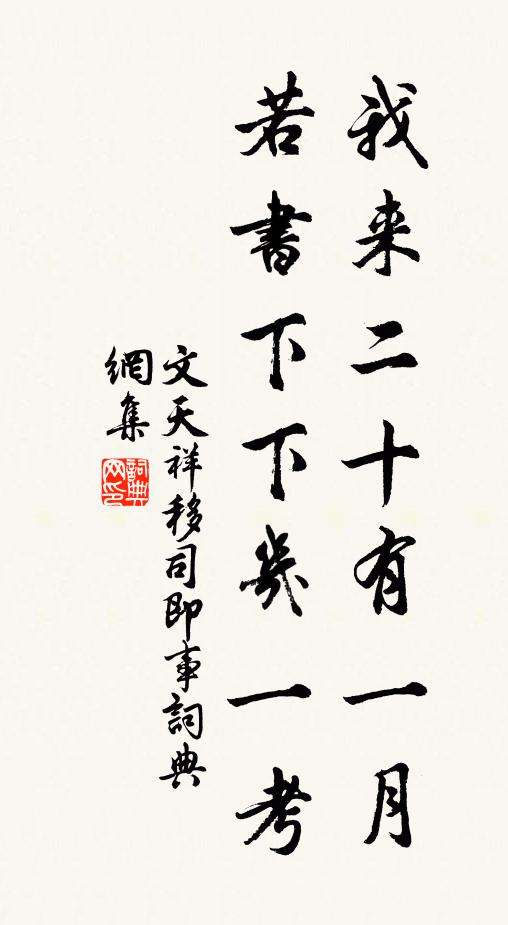 我来二十有一月
若書下下幾一考
文天祥移司即事詞典
網集
詞典
网印